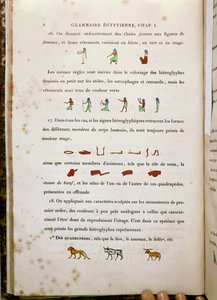 8 GRAMMAIRE ÉGYPTIENNE, CHAP. I.
16. On donnait ordinairement des chairs jaunes aux figures de
femmes, et leurs vêtements variaient en blanc, en vert et en rouge.
Les mêmes règles sont suivies dans le coloriage des hiéroglyphes
dessinés en petit sur les stèles, les sarcophages et cercueils; mais les
vêtements sont tous de couleur verte.
17. Dans tous les cas, et les signes hiéroglyphiques retracent les formes
des différents membres du corps humain, ils sont toujours peints de
couleur rouge,
ainsi que certains membres d'animaux, tels que la tête de veau, la
cuisse de bœuf, et les côtes de l'un ou de l'autre de ces quadrupèdes,
présentées en offrande.
18. On appliquait aux caractères sculptés sur les monuments de pre-
mier ordre, des couleurs à peu près analogues à celles qui caracté-
risent l'être dont ils reproduisent l'image. C'est d'après ce système que
sont peints les grands hiéroglyphes représentant:
1.° Des quadrupèdes, tels que le lion, le taureau, le bélier, etc.